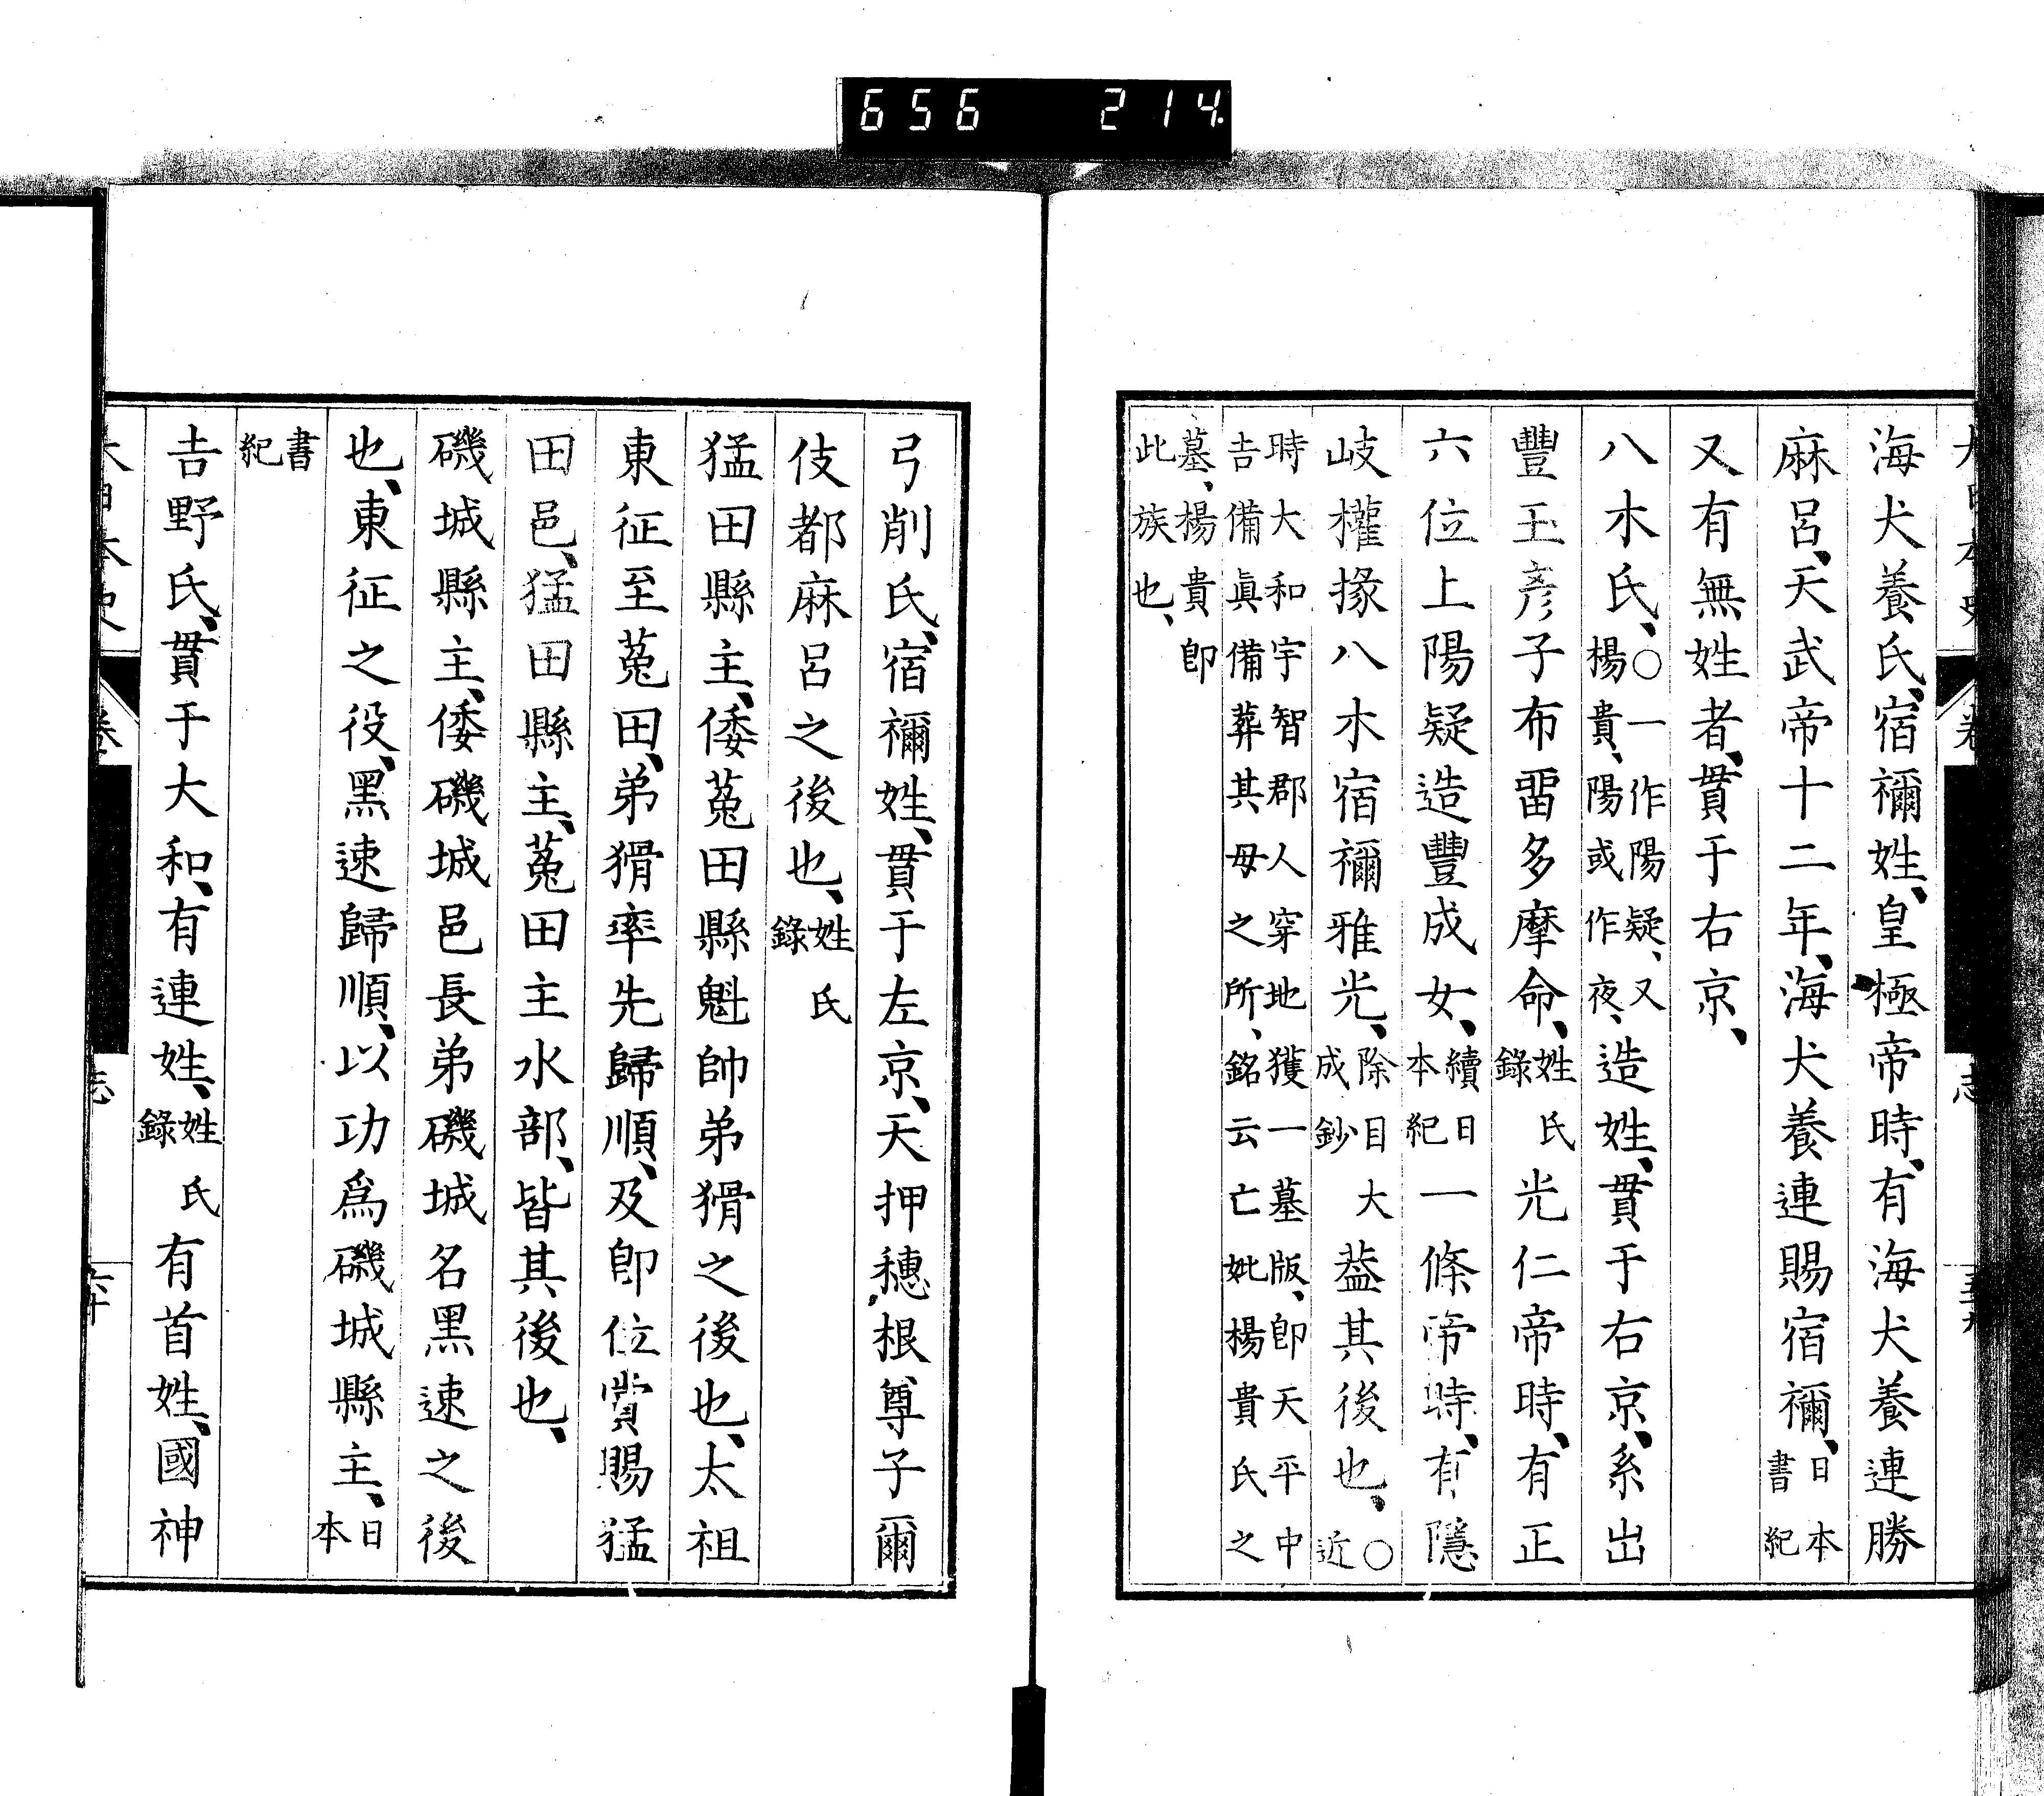 656 214
海犬養氏、宿禰姓、皇極帝時、有海犬養連勝
麻呂、天武帝十二年、海犬養連賜宿禰、日本書紀
又有無姓者、貫于右京、
八木氏、○一作陽疑、又楊貴、陽或作夜、造姓、貫于右京、系出
豐玉彥子布留多摩命、姓氏錄光仁帝時、有正
六位上陽疑造豐成女、續日本紀一條帝時、有隱
岐權掾八木宿禰雅光、除目大成鈔葢其後也、○近
時大和宇智郡人穿地獲一墓版、卽天平中
吉備眞備葬其母之所、銘云亡妣楊貴氏之
墓、楊貴卽
此族也、
弓削氏、宿禰姓、貫于左京、天押穗根尊子爾
伎都麻呂之後也、姓氏錄
猛田縣主、倭菟田縣魁帥弟猾之後也、太祖
東征至菟田、弟猾率先歸順、及卽位賞賜猛
田邑、猛田縣主、菟田主水部、皆其後也、
磯城縣主、倭磯城邑長弟磯城名黑速之後
也、東征之役、黑速歸順、以功爲磯城縣主、日本
書紀
吉野氏、貫于大和、有連姓、姓氏錄有首姓、國神